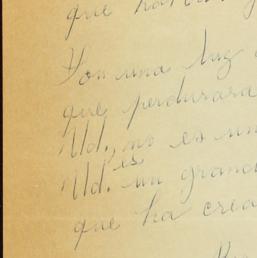 que
Y con una luz
que perdurara
Ud., no es un
Ud. es un grand
que ha crea